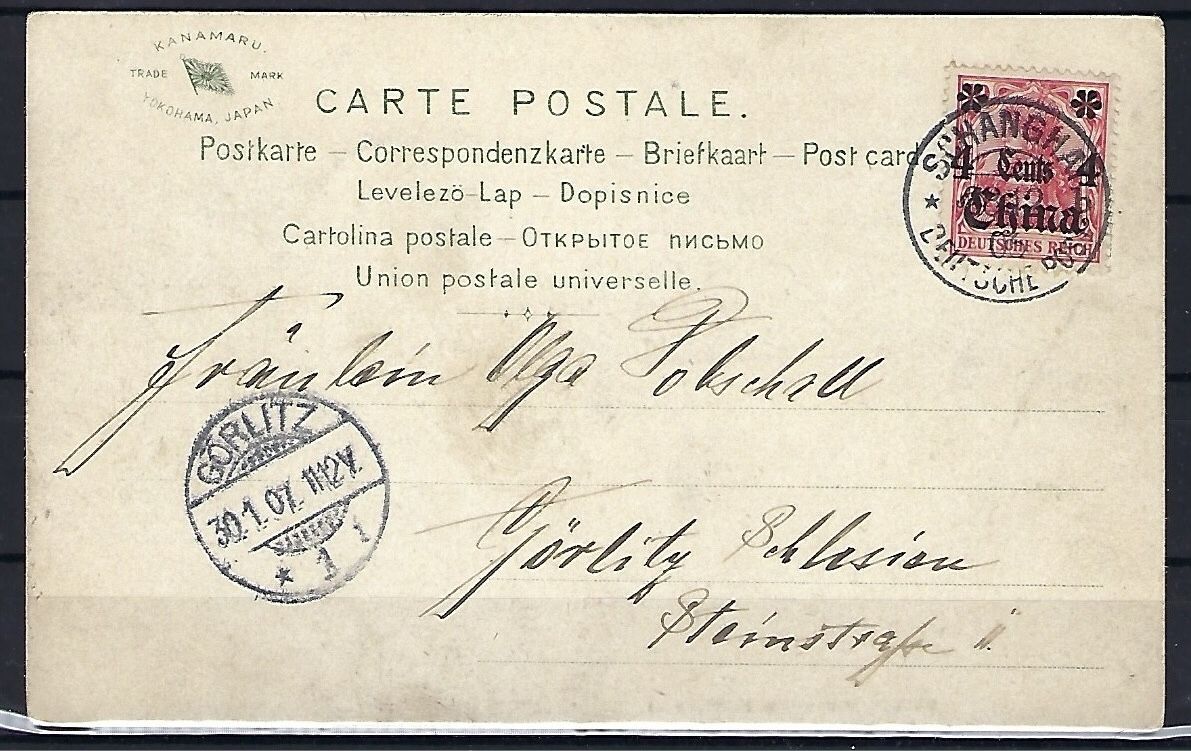 KANAMARU.
TRADE MARK
YOKOHAMA, JAPAN
CARTE POSTALE.
Postkarte – Correspondenzkarte – Briefkaart – Post card
Levelezö-Lap – Dopisnice
Cartolina postale – Открытое письмо
Union postale universelle.
SCHANGHAI
4 Cents 4
China
DEUTSCHES REICH
DEUTSCHE POST
Fräulein Olga Pobschall
GÖRLITZ
30.1.07. 11-12V.
* 1
Görlitz Schlesien
Steinstraße 11.